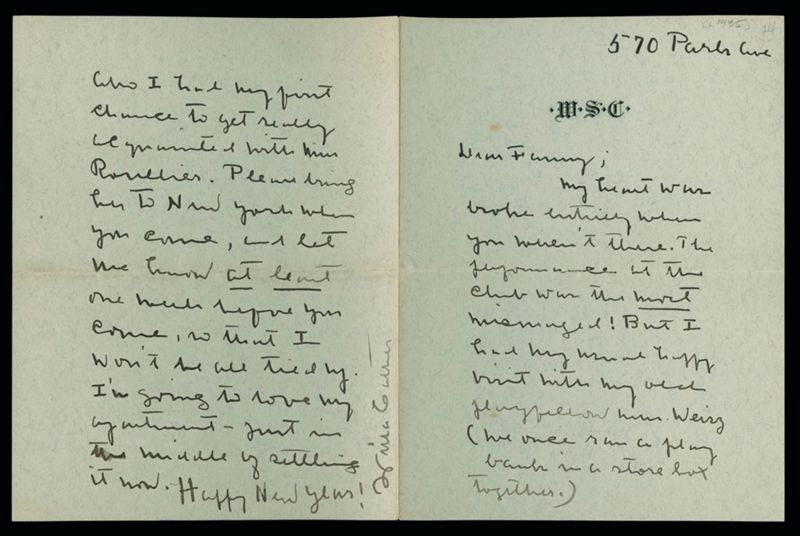 570 Park Ave
·W·S·C·
Dear Fanny;
My heart was
broke entirely when
you wheren't there. The
performance at the
club was the most
mismanaged! But I
had my usual happy
visit with my old
playfellow Mrs. Weisz
(We once ran a play
bank in a store box
together.)
Also I had my first
chance to get really
acquainted with Miss
Rosellies. Please bring
her to New York when
you come, and let
me know at least
one week before you
come, so that I
won't be all tied up.
I'm going to love my
apartment – just in
the middle of settling
it now. Happy New Year!
Willa Cather